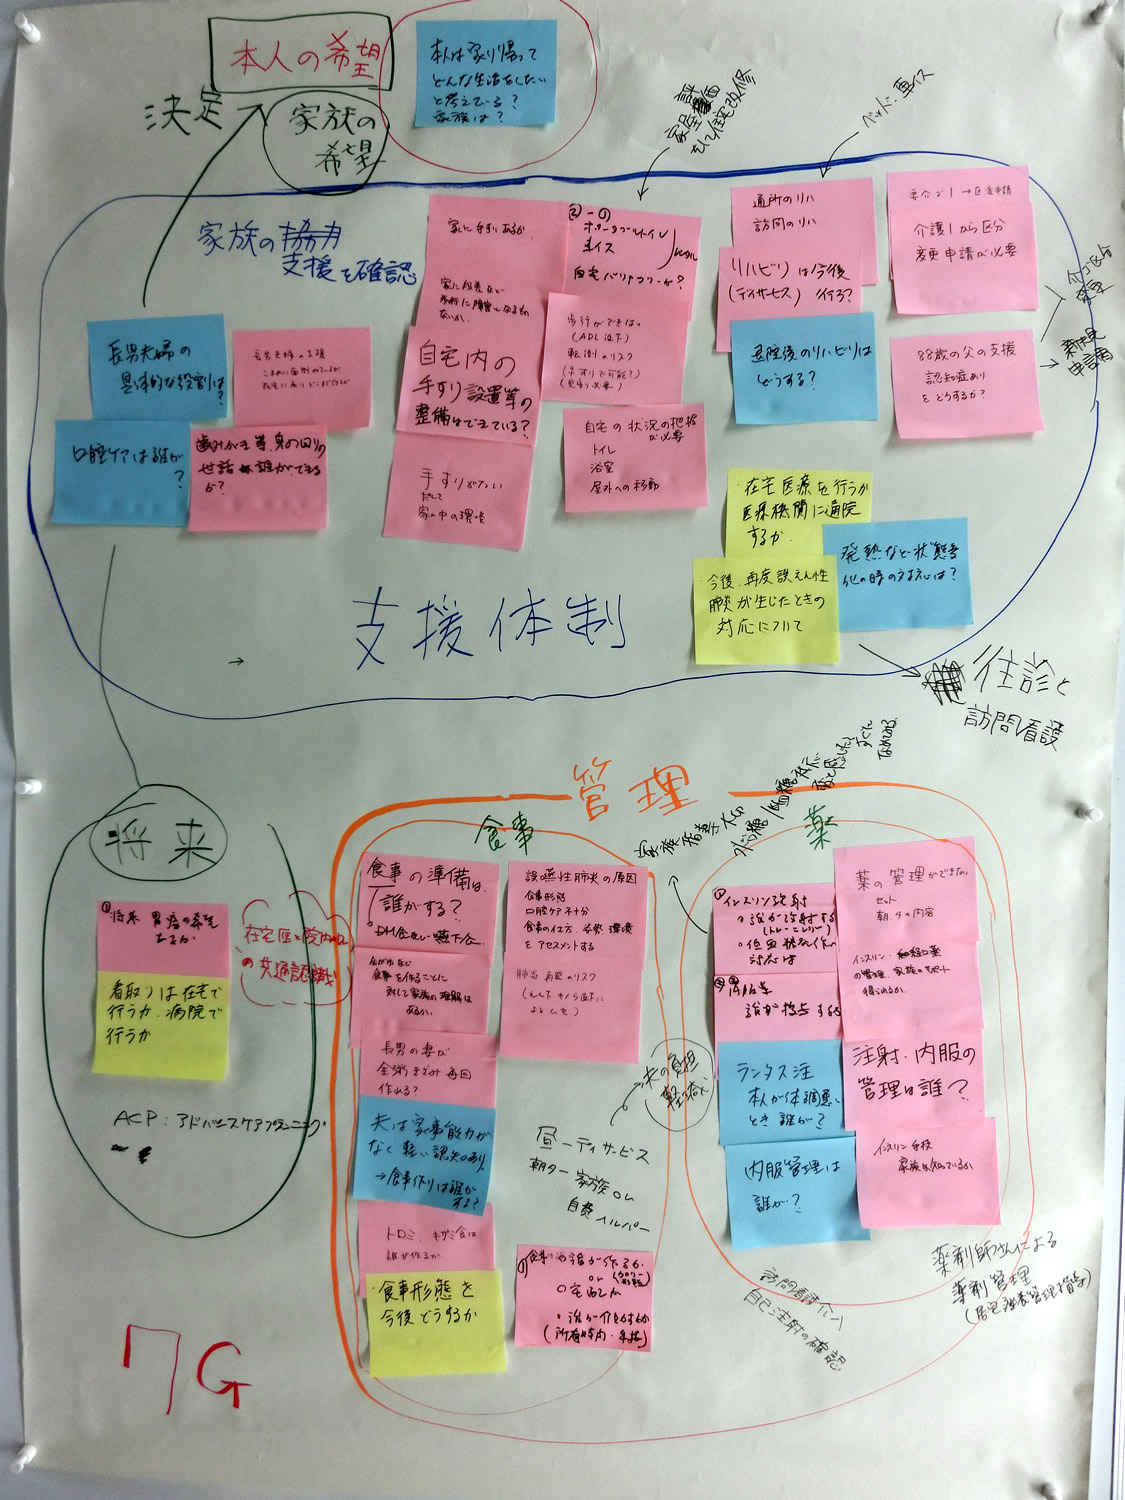 本人の希望
決定
家族の
希望
本人は家に帰って
どんな生活をしたい
と考えている?
家族は?
ベッド・車イス
家屋評価
をして住宅改修
家族の
支援を確認
長男夫婦の
具体的な役割は?
長男夫婦の支援
口腔ケアは誰が
?
歯みがき等、身の回りの
世話は誰ができる
か?
家に手すりあるか
家に段差など
歩行に障害になるもの
ないか
自宅内の
手すり設置等の
整備はできている?
手すりがない
家の中の環境
ポータブルトイレ
車イス
自宅バリアフリーか?
歩行ができない
(ADL低下)
転倒のリスク
(手すりで可能?)
(見守り必要)
自宅の状況の把握
が必要
トイレ
浴室
屋外への移動
通所のリハ
訪問のリハ
リハビリは今後
(デイサービス)行う?
退院後のリハビリは
どうする?
要介護1→区変申請
介護1から区分
変更申請が必要
88歳の父の支援
認知症あり
をどうするか?
区分
変更
新規
申請
在宅医療を行うか
医療機関に通院
するか
今後、再度誤えん性
肺炎が生じたときの
対応について
発熱など状態変
化の時の対応は?
往診と
訪問看護
支援体制
将来
将来 胃瘻の希望
あるか
看取りは在宅で
行うか、病院で
行うか
在宅医と院内Dr
の共通認識
ACP:アドバンスケアプランニング
管理
食事
食事の準備は
誰がする?
食事を作ることに
対して家族の理解は
あるか
長男の妻が
全粥きざみ毎回
作れる?
夫は家事能力が
なく軽い認知あり
→食事作りは誰が
する?
トロミ、キザミ食は
誰が作るか
食事形態を
今後どうするか
誤嚥性肺炎の原因
食事形態
口腔ケア不十分
食事の仕方、姿勢、環境
をアセスメントする
肺炎再発のリスク
夫の負担
軽減
昼ーデイサービス
朝夕ー家族or
自費ヘルパー
薬
インスリン注射
誰が注射する
低血糖状態の
対応は
誰が担当するか
ランタス注
本人が体調悪い
とき誰が?
内服管理は
誰が?
薬の管理ができない
セット
朝・夕の内容
インスリン・経口薬
の管理、家族のサポート
得られるか
注射・内服の
管理は誰?
インスリン手技
家族は知っているか
訪問看護にて
自己注射の確認
薬剤師さんによる
薬剤管理
(居宅療養管理指導)
7G